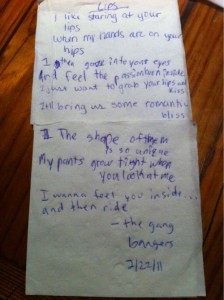 Lips
I like staring at your
lips
when my hands are on your
hips
I then gaze into your eyes
And feel the passion turn inside
I just want to grab your lips and
kiss
It'll bring us some romantic
bliss
The shape of them
is so unique
My pants grow tight when
you look at me
I wanna feel you inside...
and then ride
- the gang
bangers
2/22/11